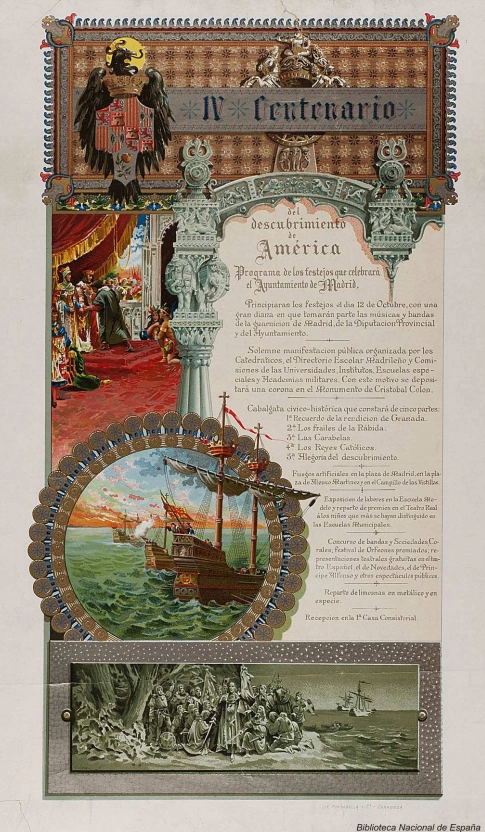 IV * Centenario *
del
descubrimiento
de
América
Programa de los festejos que celebrará
el Ayuntamiento de Madrid.
Principiarán los festejos el día 12 de Octubre, con una
gran diana en que tomarán parte las músicas y bandas
de la guarnición de Madrid, de la Diputación Provincial
y del Ayuntamiento.
Solemne manifestación pública organizada por los
Catedráticos, el Directorio Escolar Madrileño y Comi-
siones de las Universidades, Institutos, Escuelas espe-
ciales y Academias militares. Con este motivo se deposi-
tará una corona en el Monumento de Cristobal Colón.
Cabalgata cívico-histórica que constará de cinco partes:
1ª Recuerdo de la rendición de Granada.
2ª Los frailes de la Rábida.
3ª Las Carabelas.
4ª Los Reyes Católicos.
5ª Alegoría del descubrimiento.
Fuegos artificiales en la plaza de Madrid, en la pla-
za de Alonso Martínez y en el Campillo de las Vistillas.
Exposición de labores en la Escuela Mo-
delo y reparto de premios en el Teatro Real
á los niños que más se hayan distinguido en
las Escuelas Municipales.
Concurso de bandas y Sociedades Co-
rales; festival de Orfeones premiados; re-
presentaciones teatrales gratuitas en el tea-
tro Español, el de Novedades, el de Prín-
cipe Alfonso y otros espectáculos públicos.
Reparto de limosnas en metálico y en
especie.
Recepción en la 1ª Casa Consistorial.
Biblioteca Nacional de España